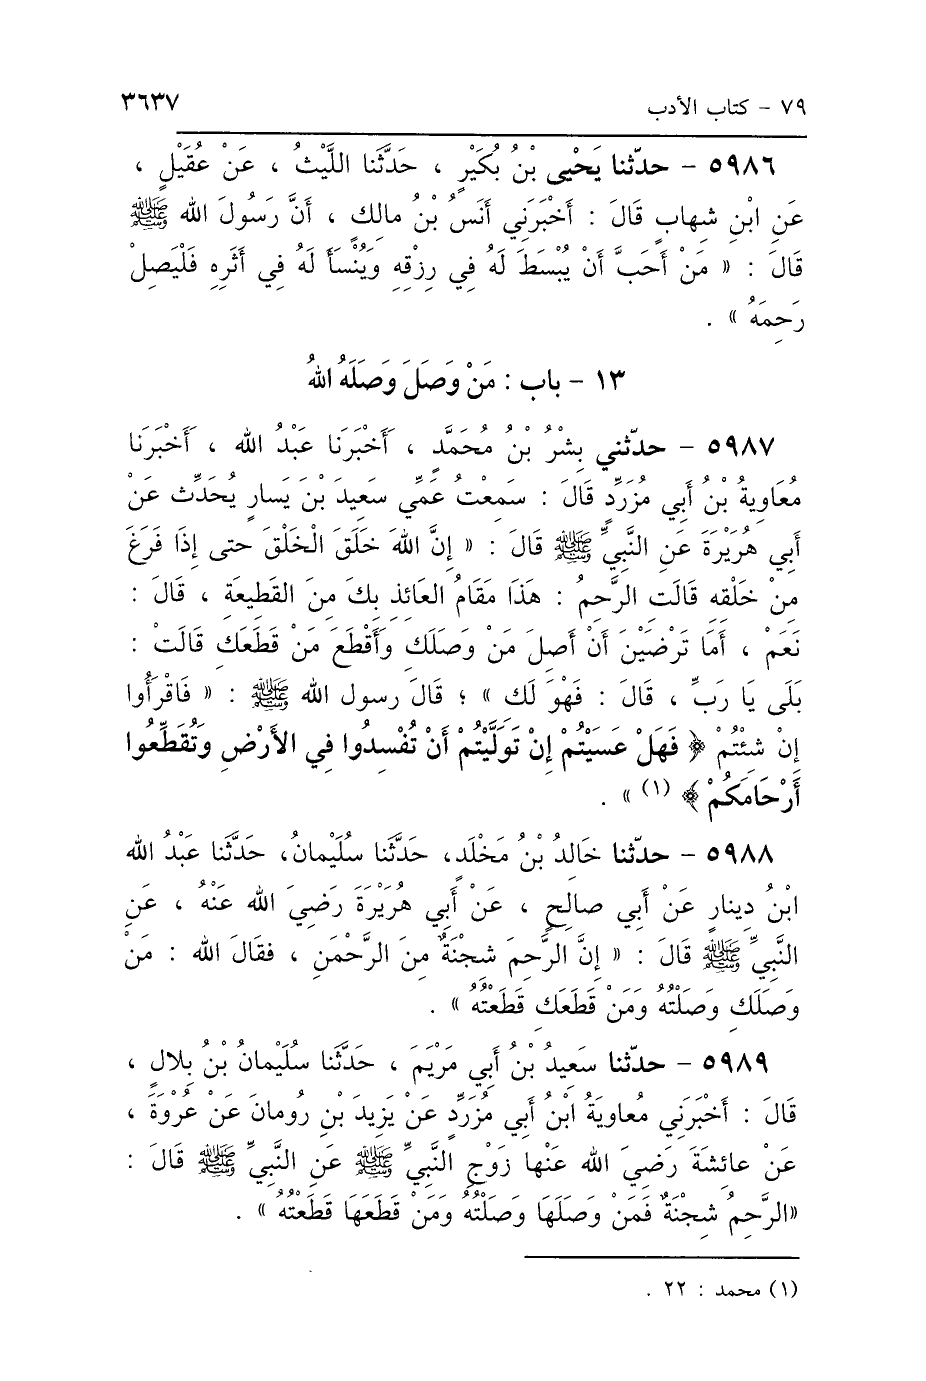 ٧٩ - كتاب الأدب ٣٦٣٧
٥٩٨٦ - حدّثنا يَحْيى بْنُ بُكَيْرٍ ، حَدَّثَنا اللَّيْثُ ، عَنْ عُقَيْلٍ ،
عَنِ ابْنِ شِهابٍ قَالَ : أَخْبَرَنِي أَنَسُ بْنُ مالِكٍ ، أَنَّ رَسُولَ الله ﷺ
قَالَ : « مَنْ أَحَبَّ أَنْ يُبْسَطَ لَهُ فِي رِزْقِهِ وَيُنْسَأَ لَهُ فِي أَثَرِهِ فَلْيَصِلْ
رَحِمَهُ » .
١٣ - باب : مَنْ وَصَلَ وَصَلَهُ اللهُ
٥٩٨٧ - حدّثني بِشْرُ بْنُ مُحَمَّدٍ ، أَخْبَرَنَا عَبْدُ الله ، أَخْبَرَنَا
مُعَاوِيةُ بْنُ أَبِي مُزَرِّدٍ قَالَ : سَمِعْتُ عَمِّي سَعِيدَ بْنَ يَسارٍ يُحَدِّث عَنْ
أَبِي هُرَيْرَةَ عَنِ النَّبِيِّ ﷺ قَالَ : « إِنَّ اللهَ خَلَقَ الْخَلْقَ حتى إِذَا فَرَغَ
مِنْ خَلْقِهِ قَالَتِ الرَّحِمُ : هَذَا مَقَامُ العَائِذِ بِكَ مِنَ القَطِيعَةِ ، قَالَ :
نَعَمْ ، أَمَا تَرْضَيْنَ أَنْ أَصِلَ مَنْ وَصَلَكِ وَأَقْطَعَ مَنْ قَطَعَكِ قَالَتْ :
بَلَى يَا رَبِّ ، قَالَ : فَهْوَ لَكِ » ؛ قَالَ رسول الله ﷺ : « فَاقْرَأُوا
إِنْ شِئْتُمْ ﴿ فَهَلْ عَسَيْتُمْ إِنْ تَوَلَّيْتُمْ أَنْ تُفْسِدُوا فِي الأَرْضِ وَتُقَطِّعُوا
أَرْحَامَكُمْ ﴾ (١) » .
٥٩٨٨ - حدّثنا خَالِدُ بْنُ مَخْلَدٍ، حَدَّثَنا سُلَيْمانُ، حَدَّثَنا عَبْدُ الله
ابْنُ دِينارٍ عَنْ أَبِي صالِحٍ ، عَنْ أَبِي هُرَيْرَةَ رَضِيَ الله عَنْهُ ، عَنِ
النَّبِيِّ ﷺ قَالَ : « إِنَّ الرَّحِمَ شِجْنَةٌ مِنَ الرَّحْمَنِ ، فقَالَ الله : مَنْ
وَصَلَكِ وَصَلْتُهُ وَمَنْ قَطَعَكِ قَطَعْتُهُ » .
٥٩٨٩ - حدّثنا سَعِيدُ بْنُ أَبِي مَرْيَمَ ، حَدَّثَنا سُلَيْمانُ بْنُ بِلالٍ ،
قَالَ : أَخْبَرَنِي مُعاوِيَةُ ابْنُ أَبِي مُزَرِّدٍ عَنْ يَزِيدَ بْنِ رُومانَ عَنْ عُرْوَةَ ،
عَنْ عائِشَةَ رَضِيَ الله عَنْها زَوْجِ النَّبِيِّ ﷺ عَنِ النَّبِيِّ ﷺ قَالَ :
«الرَّحِمُ شِجْنَةٌ فَمَنْ وَصَلَهَا وَصَلْتُهُ وَمَنْ قَطَعَهَا قَطَعْتُهُ » .
(١) محمد : ٢٢ .